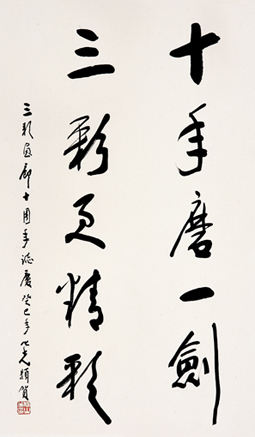 十年磨一劍
三彩更精彩
三彩画廊十周年誌慶癸巳年七光頴賀